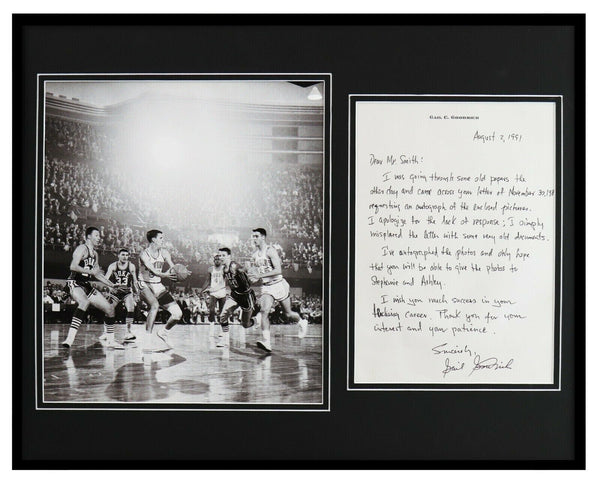 GAIL C. GOODRICH
August 2, 1991
Dear Mr. Smith:
I was going through some old papers the
other day and came across your letter of November 30,
requesting an autograph of the enclosed pictures.
I apologize for the lack of response; I simply
misplaced the letter with some very old documents.
I've autographed the photos and only hope
that you will be able to give the photos to
Stephanie and Ashley.
I wish you much success in your
career. Thank you for your
interest and your patience.
Sincerely,
Gail Goodrich
DUKE
33